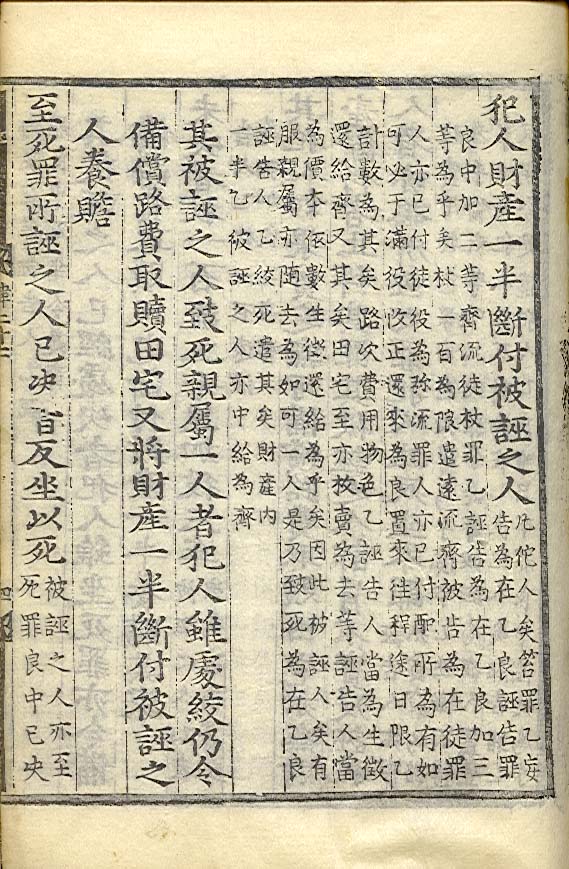 犯人財産一半斷付被誣之人
凡他人矣笞罪乙妄
告為在乙良誣告罪
良中加二等齊流徒杖罪乙誣告為在乙良加三
等為乎矣杖一百為限遣遠流齊被告為在徒罪
人亦已付徒役為㫆流罪人亦已付配所為有如
可必于滿役改正還來為良置來往程途日限乙
計數為其矣路次費用物色乙誣告人當為生徵
還給齊又其矣田宅至亦放賣為去等誣告人當
為價本依數生徵還給為乎矣因此被誣人矣有
服親屬亦随去為如可一人是乃致死為在乙良
誣告人乙絞死遣其矣財産内
一半乙被誣之人亦中給為齊
其被誣之人致死親屬一人者犯人雖處絞仍令
備償路費取贖田宅又將財産一半斷付被誣之
人養贍
至死罪所誣之人已决者反坐以死
被誣之人亦至
死罪良中已决
律二十二